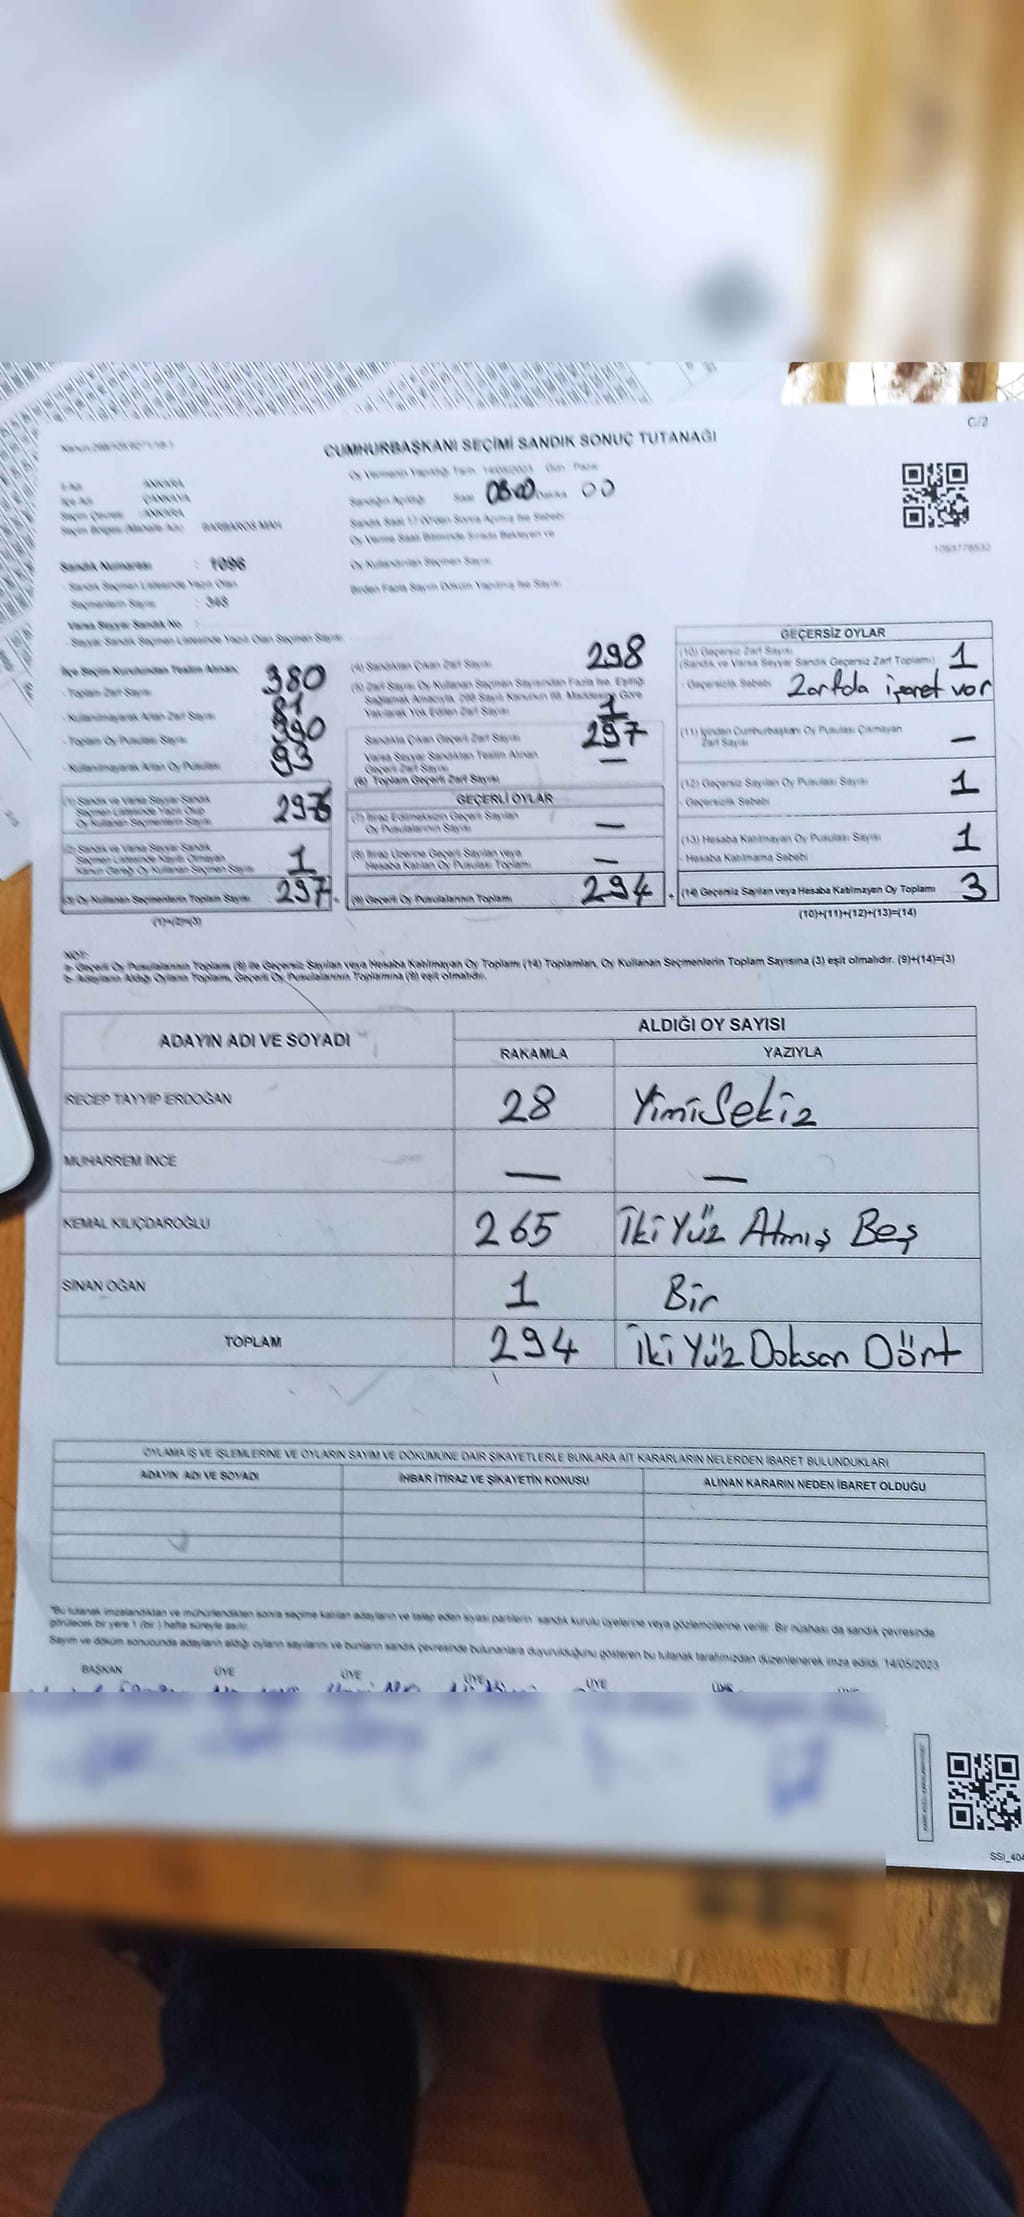 C/2
CUMHURBAŞKANI SEÇİMİ SANDIK SONUÇ TUTANAĞI
Oy Vermenin Yapıldığı Tarih 14/05/2023 Gün Pazar
İl Adı : ANKARA
İlçe Adı : ÇANKAYA
Seçim Çevresi : ANKARA
Seçim Bölgesi (Mahalle Adı) : BARBAROS MAH.
Sandığın Açıldığı Saat 08:00 Dakika 00
Sandık Saat 17:00'den Sonra Açılmış İse Sebebi
Oy Verme Saati Bitiminde Sırada Bekleyen ve
Oy Kullandırılan Seçmen Sayısı
Birden Fazla Sayım Döküm Yapılmış İse Sayısı
1093778532
Sandık Numarası : 1096
- Sandık Seçmen Listesinde Yazılı Olan
Seçmenlerin Sayısı : 348
Varsa Seyyar Sandık No :
- Seyyar Sandık Seçmen Listesinde Yazılı Olan Seçmen Sayısı
İlçe Seçim Kurulundan Teslim Alınan;
- Toplam Zarf Sayısı 380
- Kullanılmayarak Artan Zarf Sayısı 81
- Toplam Oy Pusulası Sayısı 390
- Kullanılmayarak Artan Oy Pusulası 93
(1) Sandık ve Varsa Seyyar Sandık
Seçmen Listesinde Yazılı Olup
Oy Kullanan Seçmenlerin Sayısı 296
(2) Sandık ve Varsa Seyyar Sandık
Seçmen Listesinde Kayıtlı Olmayan
Kanun Gereği Oy Kullanan Seçmen Sayısı 1
(3) Oy Kullanan Seçmenlerin Toplam Sayısı 297
(1)+(2)=(3)
(4) Sandıktan Çıkan Zarf Sayısı 298
(5) Zarf Sayısı Oy Kullanan Seçmen Sayısından Fazla İse, Eşitliği
Sağlamak Amacıyla, 298 Sayılı Kanunun 98. Maddesine Göre
Yakılarak Yok Edilen Zarf Sayısı 1
Sandıkta Çıkan Geçerli Zarf Sayısı 297
Varsa Seyyar Sandıktan Teslim Alınan
Geçerli Zarf Sayısı —
(6) Toplam Geçerli Zarf Sayısı
GEÇERLİ OYLAR
(7) İtiraz Edilmeksizin Geçerli Sayılan
Oy Pusulalarının Sayısı —
(8) İtiraz Üzerine Geçerli Sayılan veya
Hesaba Katılan Oy Pusulası Toplamı —
(9) Geçerli Oy Pusulalarının Toplamı 294
GEÇERSİZ OYLAR
(10) Geçersiz Zarf Sayısı 1
(Sandık ve Varsa Seyyar Sandık Geçersiz Zarf Toplamı)
- Geçersizlik Sebebi Zarfda işaret var
(11) İçinden Cumhurbaşkanı Oy Pusulası Çıkmayan
Zarf Sayısı —
(12) Geçersiz Sayılan Oy Pusulası Sayısı 1
- Geçersizlik Sebebi
(13) Hesaba Katılmayan Oy Pusulası Sayısı 1
- Hesaba Katılmama Sebebi
(14) Geçersiz Sayılan veya Hesaba Katılmayan Oy Toplamı 3
(10)+(11)+(12)+(13)=(14)
NOT:
a- Geçerli Oy Pusulalarının Toplamı (9) ile Geçersiz Sayılan veya Hesaba Katılmayan Oy Toplamı (14) Toplamları, Oy Kullanan Seçmenlerin Toplam Sayısına (3) eşit olmalıdır. (9)+(14)=(3)
b- Adayların Aldığı Oyların Toplamı, Geçerli Oy Pusulalarının Toplamına (9) eşit olmalıdır.
ADAYIN ADI VE SOYADI
ALDIĞI OY SAYISI
RAKAMLA YAZIYLA
RECEP TAYYİP ERDOĞAN 28 YimiSekiz
MUHARREM İNCE — —
KEMAL KILIÇDAROĞLU 265 İki Yüz Atmış Beş
SİNAN OĞAN 1 Bir
TOPLAM 294 İki Yüz Doksan Dört
OYLAMA İŞ VE İŞLEMLERİNE VE OYLARIN SAYIM VE DÖKÜMÜNE DAİR ŞİKAYETLERLE BUNLARA AİT KARARLARIN NELERDEN İBARET BULUNDUKLARI
ADAYIN ADI VE SOYADI İHBAR İTİRAZ VE ŞİKAYETİN KONUSU ALINAN KARARIN NEDEN İBARET OLDUĞU
*Bu tutanak imzalandıktan ve mühürlendikten sonra seçime katılan adayların ve talep eden siyasi partilerin sandık kurulu üyelerine veya gözlemcilerine verilir. Bir nüshası da sandık çevresinde
görülecek bir yere 1 (bir) hafta süreyle asılır.
Sayım ve döküm sonucunda adayların aldığı oyların sayılarını ve bunların sandık çevresinde bulunanlara duyurulduğunu gösteren bu tutanak tarafımızdan düzenlenerek imza edildi. 14/05/2023
BAŞKAN ÜYE ÜYE ÜYE ÜYE ÜYE ÜYE
SSI_404